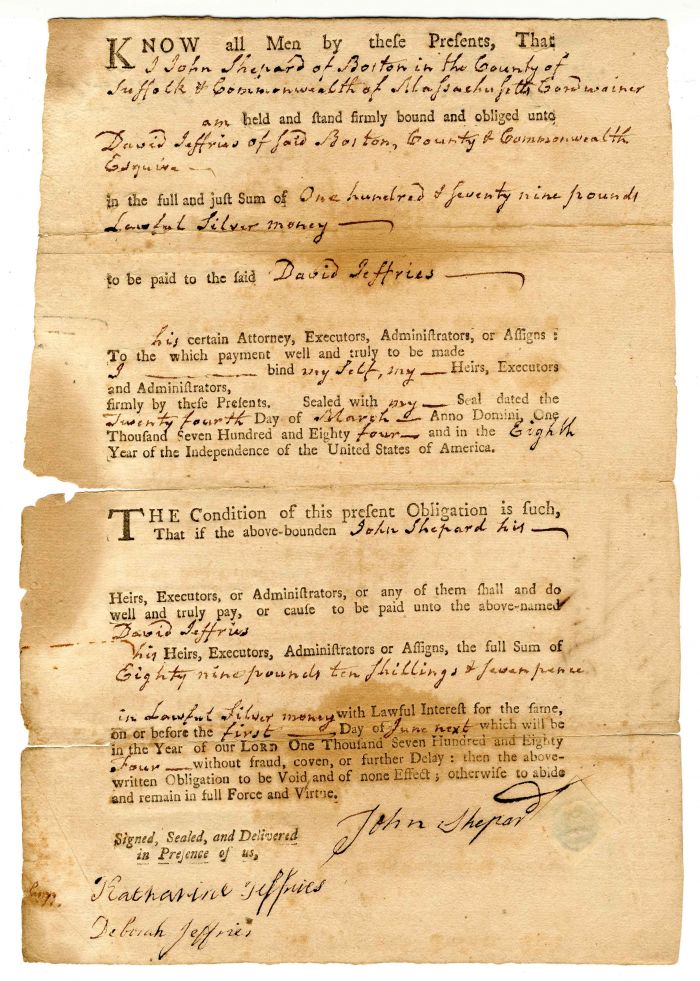 KNOW all Men by theſe Preſents, That
I John Shepard of Boston in the County of
Suffolk & Commonwealth of Massachusetts Cordwainer
am held and ſtand firmly bound and obliged unto
David Jeffries of said Boston, County & Commonwealth
Esquire
in the full and juſt Sum of One hundred & seventy nine pounds
Lawful Silver money
to be paid to the ſaid David Jeffries
his certain Attorney, Executors, Adminiſtrators, or Aſſigns :
To the which payment well and truly to be made
I bind my self, my Heirs, Executors
and Adminiſtrators,
firmly by theſe Preſents. Sealed with my Seal dated the
Twenty fourth Day of March Anno Domini, One
Thouſand Seven Hundred and Eighty four and in the Eighth
Year of the Independence of the United States of America.
THE Condition of this preſent Obligation is ſuch,
That if the above-bounden John Shepard his
Heirs, Executors, or Adminiſtrators, or any of them ſhall and do
well and truly pay, or cauſe to be paid unto the above-named
David Jeffries
his Heirs, Executors, Adminiſtrators or Aſſigns, the full Sum of
Eighty nine pounds ten shillings & seven pence
in Lawful Silver money with Lawful Intereſt for the ſame,
on or before the first Day of June next which will be
in the Year of our LORD One Thouſand Seven Hundred and Eighty
Four without fraud, coven, or further Delay : then the above-
written Obligation to be Void and of none Effect ; otherwiſe to abide
and remain in full Force and Virtue.
John Shepard
Signed, Sealed, and Delivered
in Preſence of us,
Katharine Jeffries
Deborah Jeffries